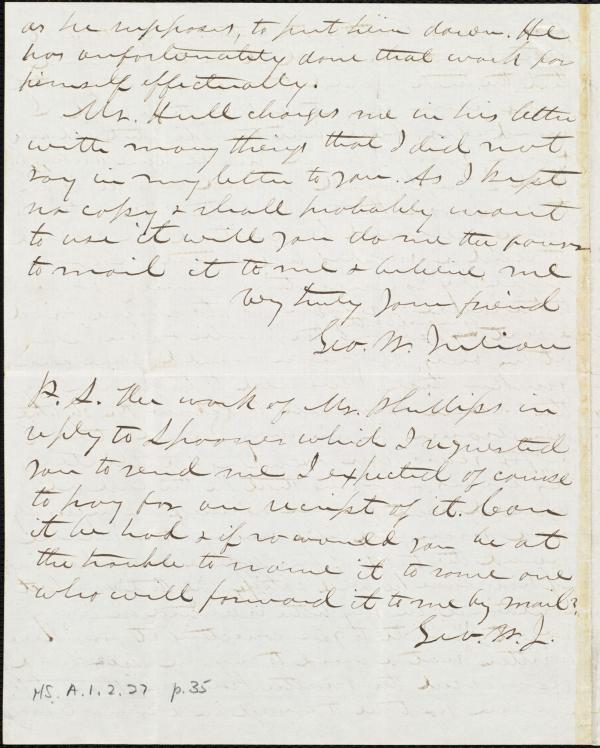 as he supposes, to put him down. He
has unfortunately done that work for
himself effectually.
Mr. Hull charges me in his letter
with many things that I did not
say in my letter to you. As I kept
no copy & shall probably want
to use it will you do me the favor
to mail it to me & believe me
very truly your friend
Geo. W. Julian
P. S. The work of Mr. Phillips in
reply to Spooner which I requested
you to send me I expected of course
to pay for on receipt of it. Can
it be had & if so would you be at
the trouble to name it to some one
who will forward it to me by mail?
Geo. W. J.
MS. A.1.2.27 p.35